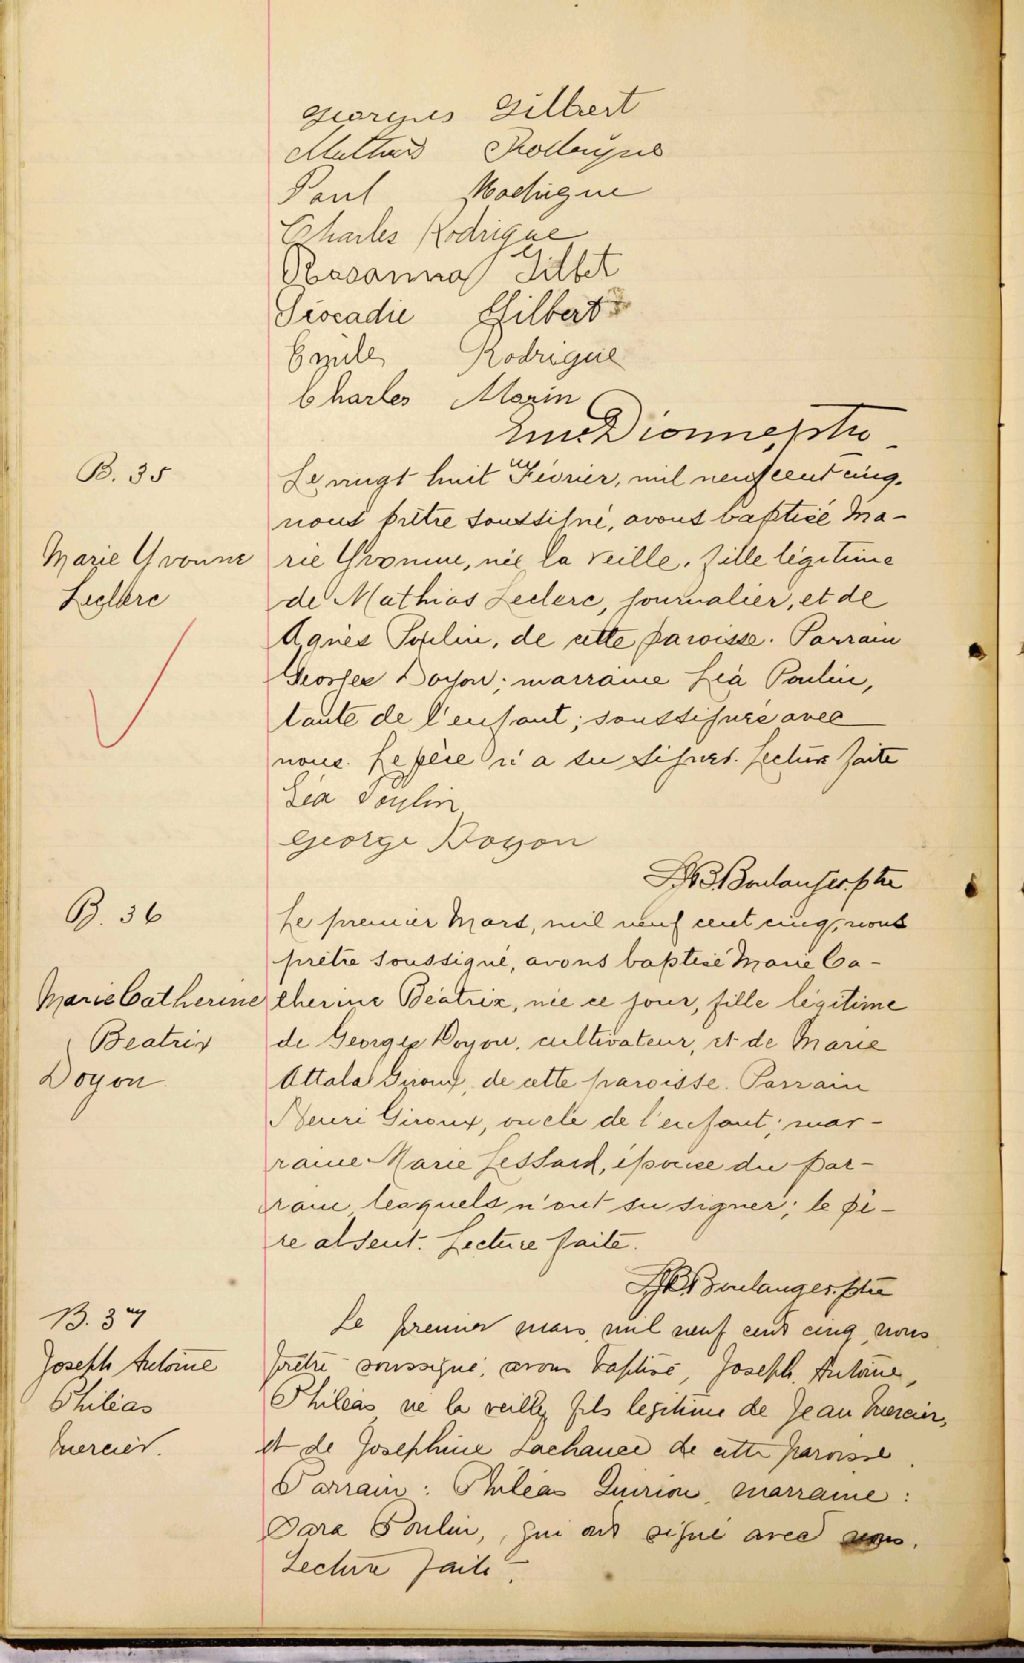 Georges Gilbert
Mathias Rodrigue
Paul Rodrigue
Charles Rodrigue
Rosanna Gilbet
Léocadie Gilbert
Emile Rodrigue
Charles Morin
Em. Dionne, ptre
B. 35
Marie Yvonne
Leclerc
Le vingt huit Février, mil neuf cent cinq,
nous prêtre soussigné, avons baptisé Ma-
rie Yvonne, née la veille, fille légitime
de Mathias Leclerc, journalier, et de
Agnès Poulin, de cette paroisse. Parrain
Georges Doyon; marraine Léa Poulin,
tante de l'enfant; soussignés avec
nous. Le père n'a su signer. Lecture faite
Léa Poulin
George Doyon
J.B. Boulanger, ptre
B. 36
Marie Catherine
Beatrix
Doyon
Le premier Mars, mil neuf cent cinq, nous
prêtre soussigné, avons baptisé Marie Ca-
therine Béatrix, née ce jour, fille légitime
de Georges Doyon, cultivateur, et de Marie
Attala Giroux, de cette paroisse. Parrain
Henri Giroux, oncle de l'enfant; mar-
raine Marie Lessard, épouse du par-
rain, lesquels n'ont su signer; le pè-
re absent. Lecture faite.
J.B. Boulanger, ptre
B. 37
Joseph Antoine
Philéas
Mercier.
Le premier mars, mil neuf cent cinq, nous
prêtre soussigné, avons baptisé, Joseph, Antoine,
Philéas, né la veille, fils legitime de Jean Mercier,
et de Josephine Lachance de cette paroisse.
Parrain: Philéas Quirion, marraine:
Sara Poulin, qui ont signé avec nous.
Lecture faite.